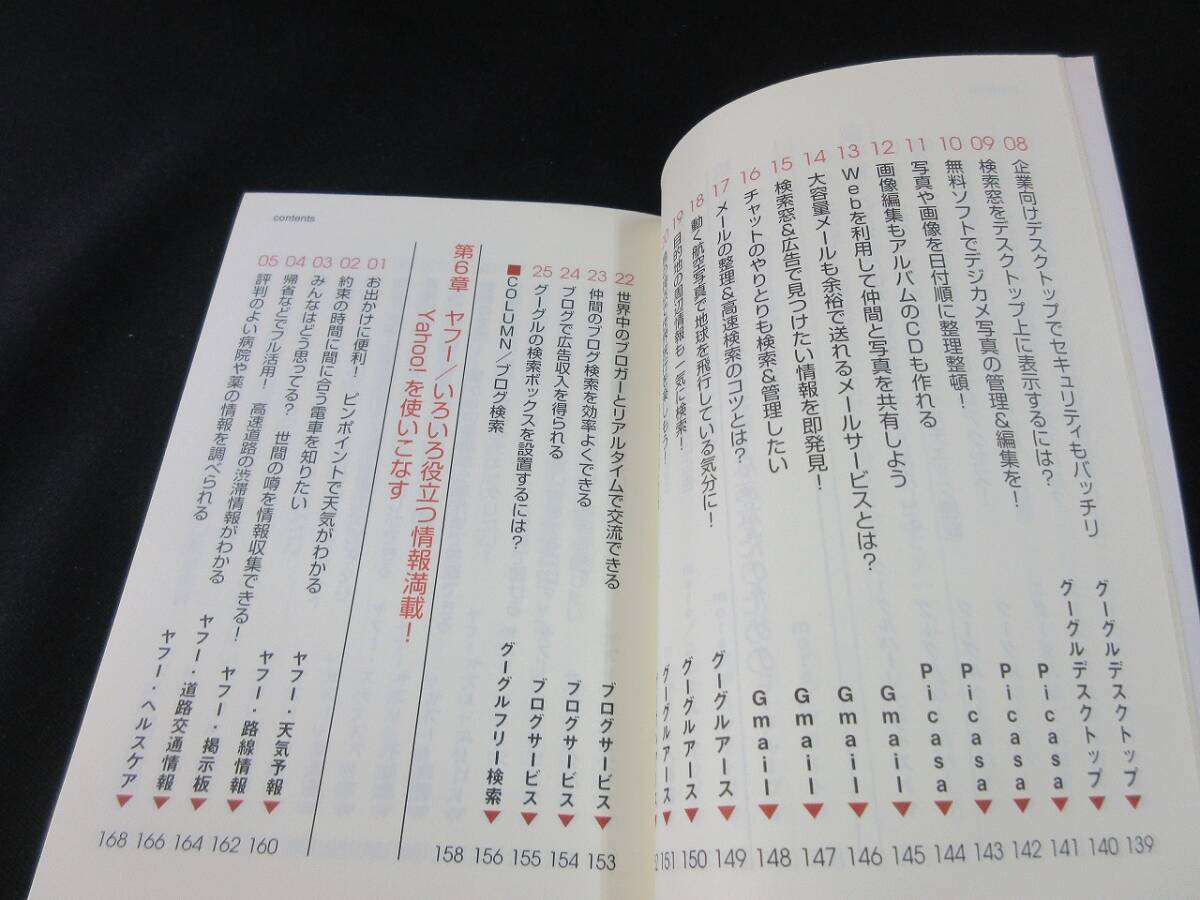 08 企業向けデスクトップでセキュリティもバッチリ グーグルデスクトップ ▼ 139
09 検索窓をデスクトップ上に表示するには？ グーグルデスクトップ ▼ 140
10 無料ソフトでデジカメ写真の管理&編集を！ Picasa ▼ 141
11 写真や画像を日付順に整理整頓！ Picasa ▼ 142
12 画像編集もアルバムのCDも作れる Picasa ▼ 143
13 Webを利用して仲間と写真を共有しよう Picasa ▼ 144
14 大容量メールも余裕で送れるメールサービスとは？ Gmail ▼ 145
15 検索窓&広告で見つけたい情報を即発見！ Gmail ▼ 146
16 チャットのやりとりも検索&管理したい Gmail ▼ 147
17 メールの整理&高速検索のコツとは？ Gmail ▼ 148
18 動く航空写真で地球を飛行している気分に！ グーグルアース ▼ 149
19 目的地の周辺情報も一気に検索！ グーグルアース ▼ 150
グーグルアース ▼ 151
contents
22 世界中のブロガーとリアルタイムで交流できる ブログサービス ▼ 153
23 仲間のブログ検索を効率よくできる ブログサービス ▼ 154
24 ブログで広告収入を得られる ブログサービス ▼ 155
25 グーグルの検索ボックスを設置するには？ グーグルフリー検索 ▼ 156
■COLUMN／ブログ検索 158
第6章 ヤフー／いろいろ役立つ情報満載！
Yahoo! を使いこなす
01 お出かけに便利！ ピンポイントで天気がわかる ヤフー・天気予報 ▼ 160
02 約束の時間に間に合う電車を知りたい ヤフー・路線情報 ▼ 162
03 みんなはどう思ってる？ 世間の噂を情報収集できる！ ヤフー・掲示板 ▼ 164
04 帰省などでフル活用！ 高速道路の渋滞情報がわかる ヤフー・道路交通情報 ▼ 166
05 評判のよい病院や薬の情報を調べられる ヤフー・ヘルスケア ▼ 168